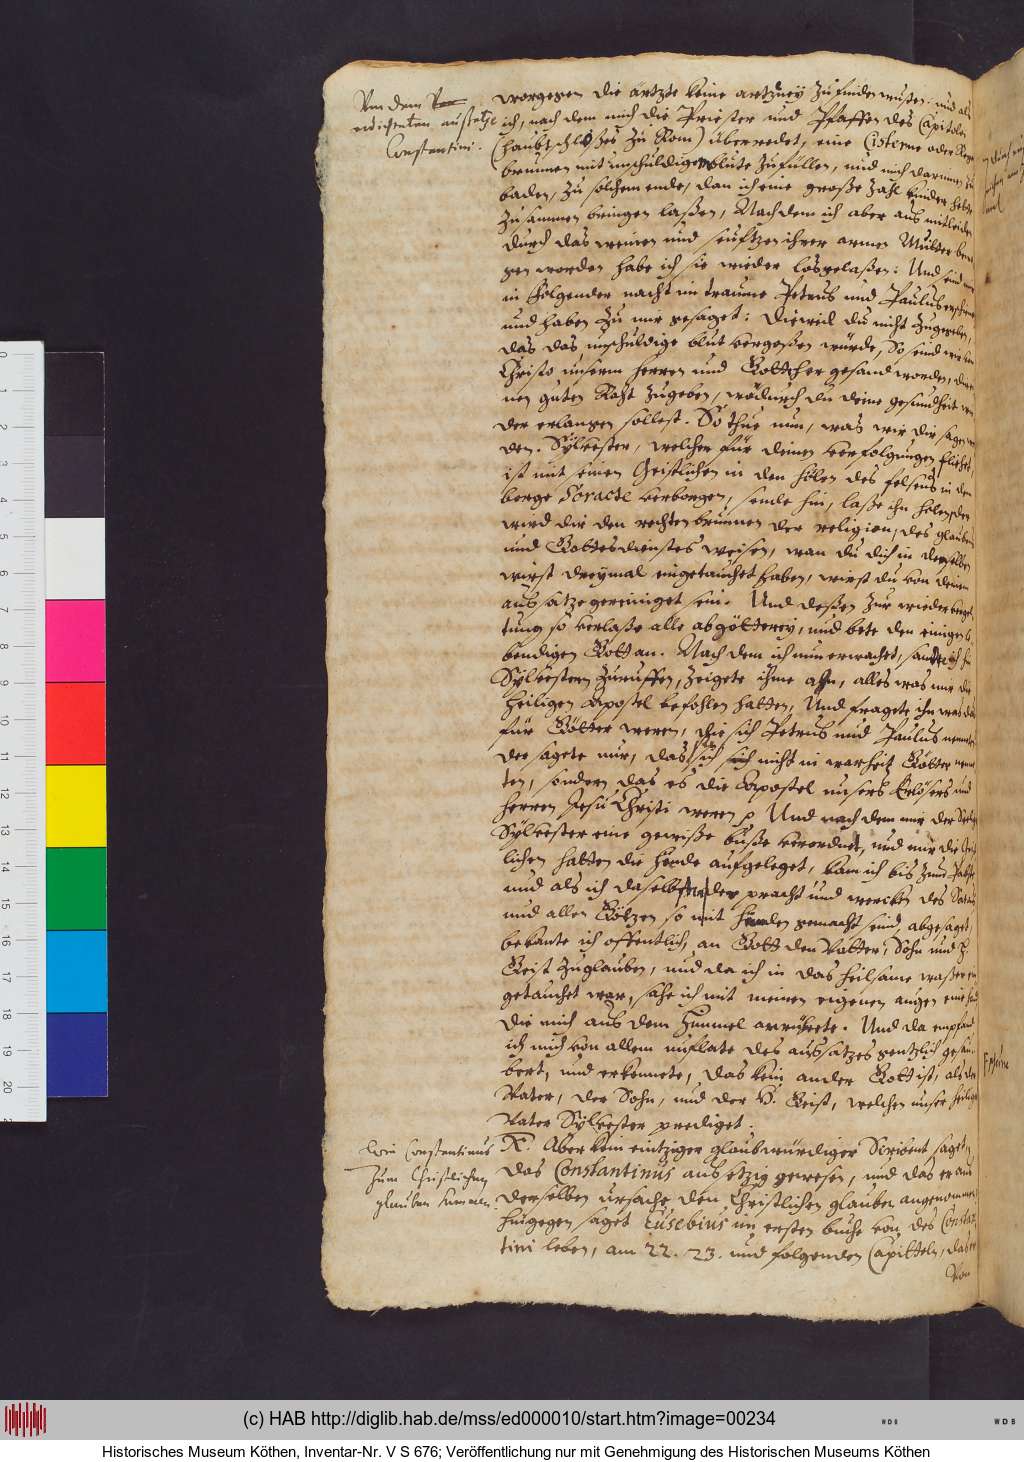 Von dem
erdichteten außsatze
Constantini.
worgegen die ärtzte keine artzney zu finden wusten. und als
ich, nach dem mich die Priester und Pfaffen des Capitolii
(haubtschloßes zu Rom) überredet, eine Cisterne oder
brunnen mit unschuldigem blute zufüllen, und mich darinnen zu
baden, zu solchem ende, dan ich eine große zahl kinder hette
zusammen bringen laßen, Nachdem ich aber aus mitleiden
durch das weinen und seufftzen ihrer armen Mütter
gen worden habe ich sie wieder losgelaßen: Und seind mir
in folgender nacht im traume Petrus und Paulus erschienen
und haben zu mir gesaget: dieweil du nicht zugegeben,
das das unschuldige blut vergoßen würde, So seind wir von
Christo unserm herren und Gott her gesand worden,
nen guten Raht zugeben, wodurch du deine gesundheit
der erlangen sollest. So thue nun, was wir dir sagen
den. Sylvester, welcher für deinen verfolgungen fliehet,
ist mit seinen Geistlichen in den hölen des felsens in dem
berge Soracte verborgen, sende hin, laße ihn holen, der
wird dir den rechten brunnen der religion, des glaubens
und Gottesdienstes weisen, wan du dich in derselben
wirst dreymal eingetauchet haben, wirst du von deinem
aussatze gereiniget sein. Und deßen zur wiedervergel
tung so verlaße alle abgötterey, und bete den einigen le
bendigen Gott an. Nach dem ich nun erwachet, sandte ich hin
Sylvestern zuruffen, zeigete ihme ahn, alles was mir die
heiligen Apostel befohlen hatten, Und fragete ihn was das
für Götter weren, die sich Petrus und Paulus nenneten
der sagete mir, das sie sich nicht in warheit Götter nenne
ten, sondern das es die Apostel unsers Erlösers und
herren Jesu Christi weren p Und nach dem mir der Seelige
Sylvester eine gewiße buße verordnet, und mir die Geist
lichen hatten die Hende aufgeleget, kam ich bis zum
und als ich daselbst der pracht und wercken des Satans
und allen Götzen so mit henden gemacht seind, abgesaget,
bekante ich offentlich, an Gott den Vatter, Sohn und H.
Geist zuglauben, und da ich in das heilsame waßer ein
getauchet war, sahe ich mit meinen eigenen augen eine hand
die mich aus dem Himmel anrührete. Und da empfand
ich mich von allem unflate des aussatzes gentzlich gesäu
bert, und erkennete, das kein ander Gott ist, als der
Vater, der Sohn, und der H. Geist, welchen unser heilige
Vater Sylvester prediget.
Wie Constantinus
zum Christlichen
glauben kommen.
X. Aber kein eintziger glaubwürdiger Scribent saget,
das Constantinus aussetzig gewesen, und das er aus
derselben ursache den Christlichen glauben angenommen
hingegen saget Eusebius im ersten buche von des Constan
tini leben, am 22. 23. und folgenden Capitteln, das er
Von
(c) HAB http://diglib.hab.de/mss/ed000010/start.htm?image=00234
Historisches Museum Köthen, Inventar-Nr. V S 676; Veröffentlichung nur mit Genehmigung des Historischen Museums Köthen